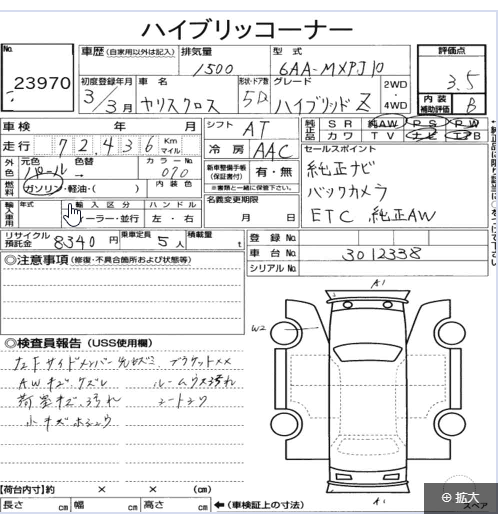 ハイブリッドコーナー
No. 23970
車歴 (自家用以外は記入) 排気量 1500 型式 6AA-MXPJ10 評価点 3.5
初度登録年月 3年3月 車名 ヤリスクロス 形状・ドア数 5D グレード ハイブリッド Z 2WD・4WD 内装補助評価 B
車検 年 月 シフト AT 純正品 SR 純AW PS PW
カワ TV ナビ エアB
走行 72,436 Km マイル
冷房 AAC セールスポイント
外色 元色 パール 色替 → カラーNo. 070
新車整備手帳(保証書付) 有・無 純正ナビ
燃料 ガソリン・軽油・( ) 内装色
※書類と一緒に保管下さい。 バックカメラ
輸入車用 年式 輸入区分 ハンドル 名義変更期限 ETC 純正AW
ディーラー・並行 左・右 月 日
リサイクル預託金 8340円 乗車定員 5人 積載量 t 登録No.
車台No. 3012338
◎注意事項 (修復・不具合箇所および状態等) シリアルNo.
A1
W2
◎検査員報告 (USS使用欄)
AWキズ・ケズレ ルームウス汚れ
荷室キズ、汚れ
小キズ
【荷台内寸】約 × × (cm)
長さ cm 幅 cm 高さ cm ←(車検証上の寸法)
A1
スペア
拡大